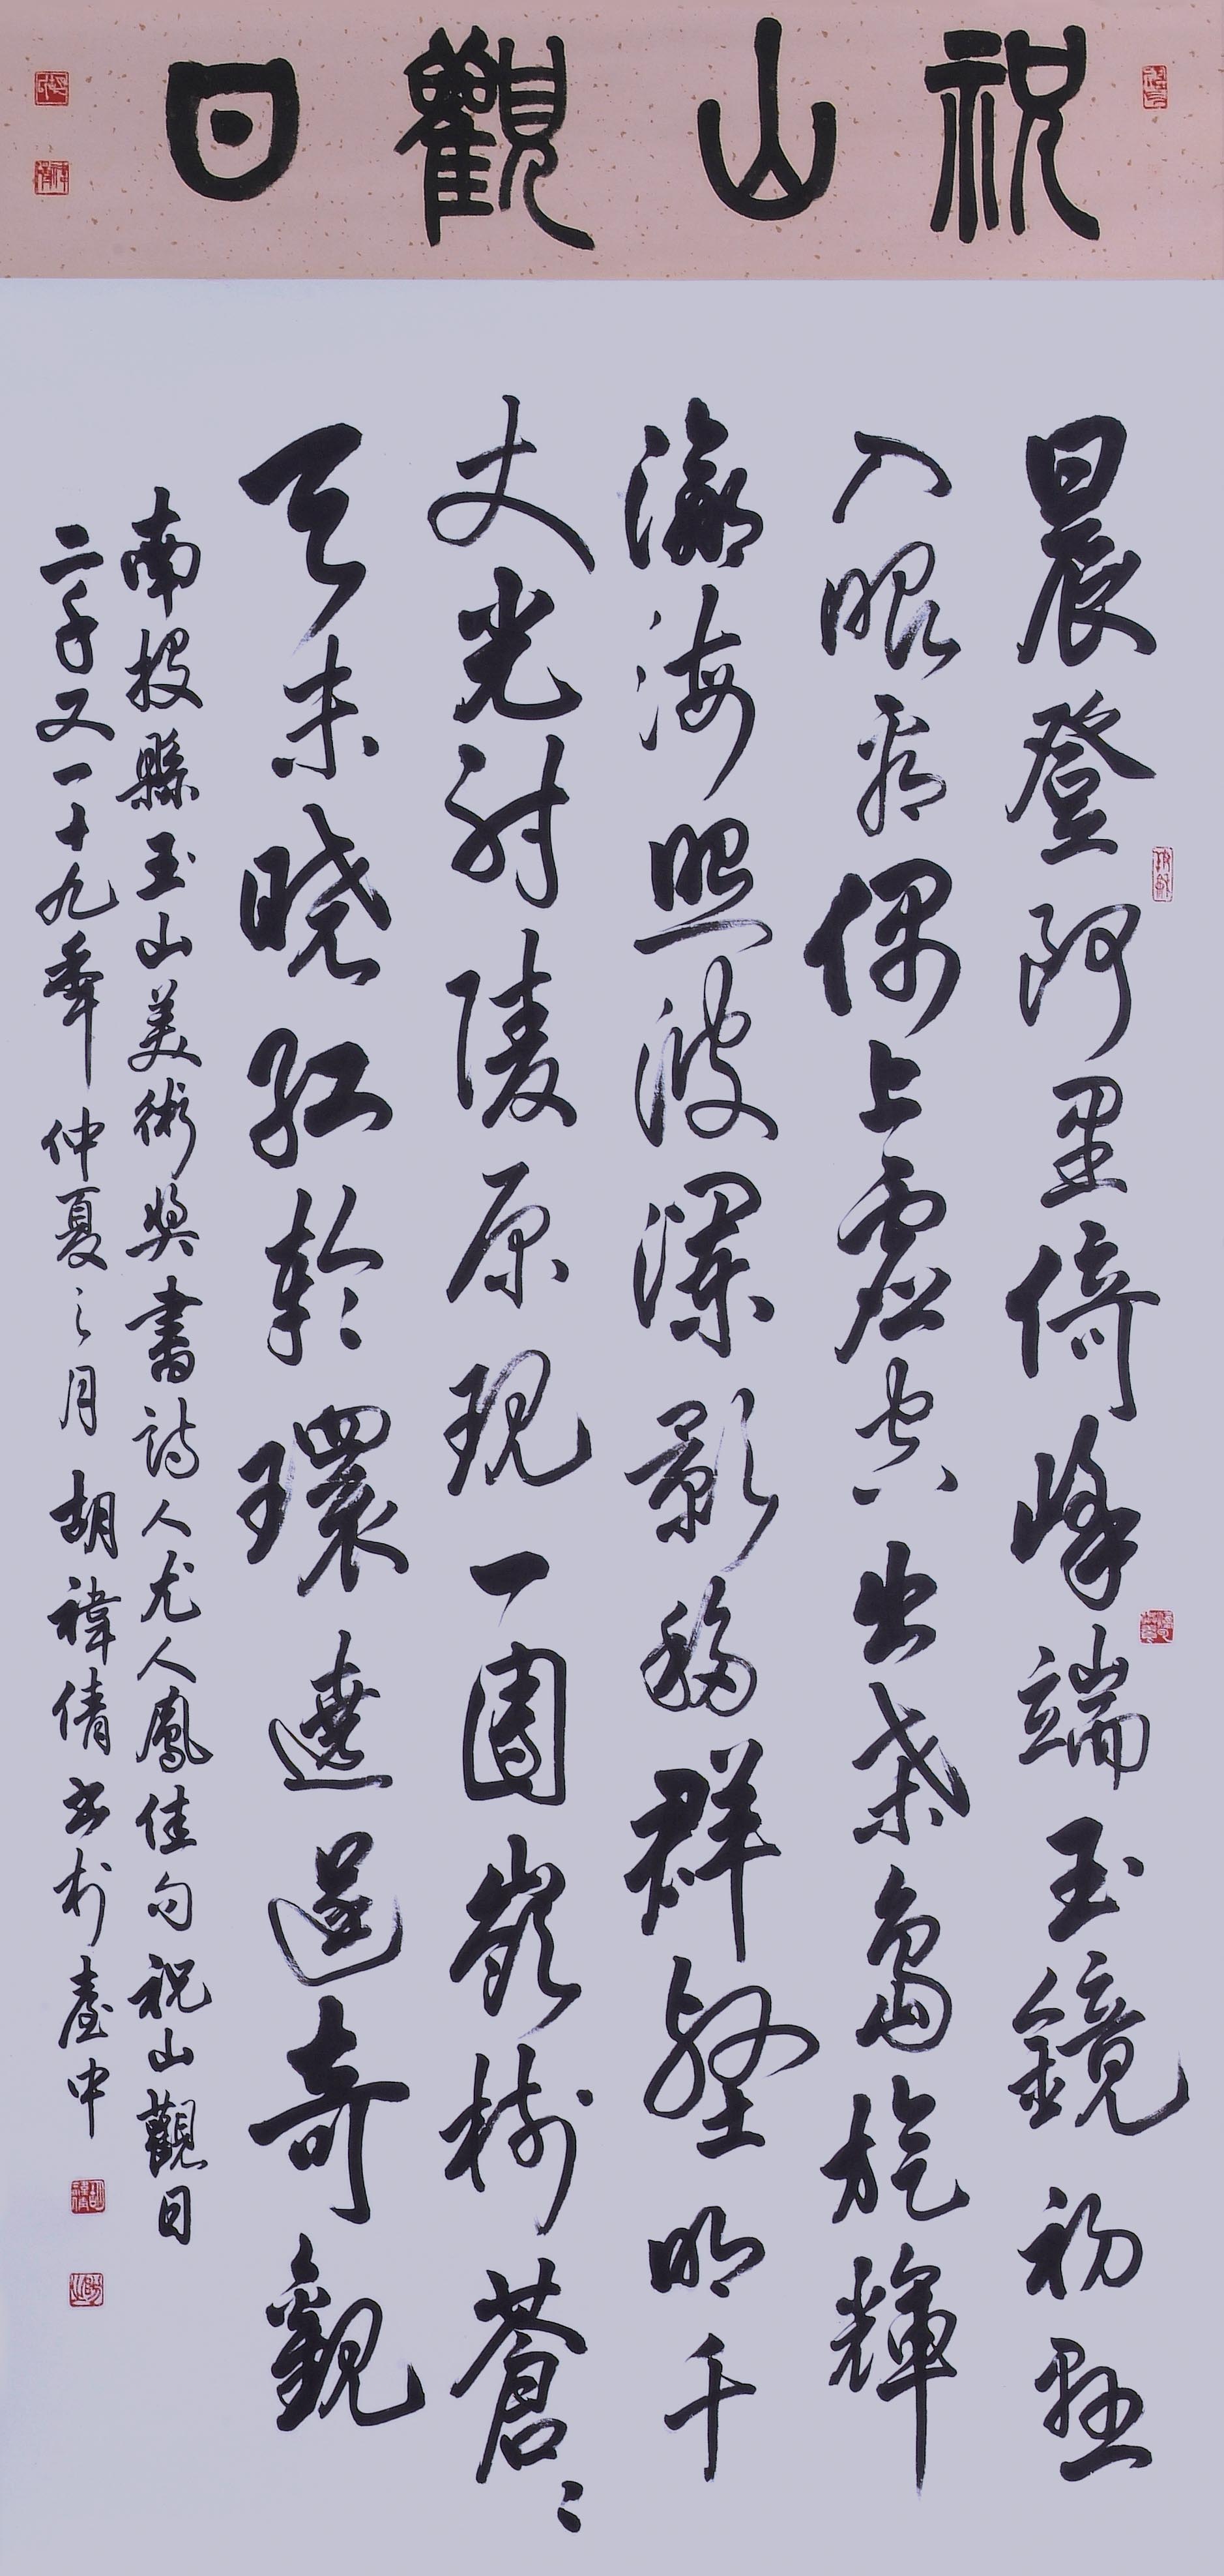 祝山觀日
晨登阿里倚峰端玉鏡初懸
入眼看偶上虛空出桑島旋輝
瀛海照波瀾影移群壑明千
丈光射陵原現一團嶺樹蒼々
天未曉紅輪環遶逞奇觀
南投縣玉山美術獎書詩人尤人鳳佳句祝山觀日
二千又一十九年仲夏之月胡禕倩書於臺中